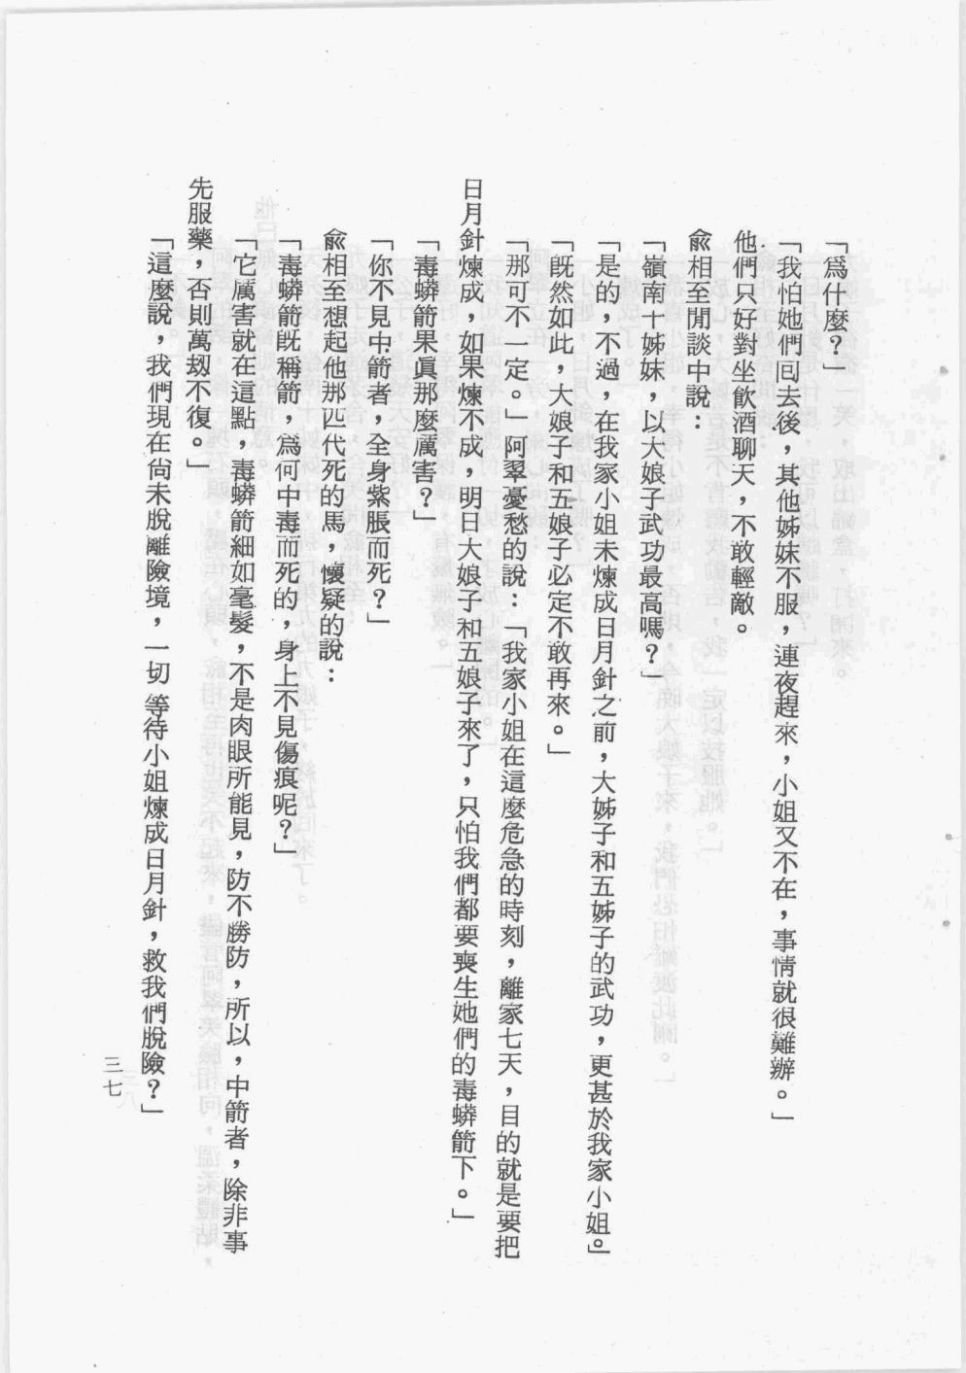 「爲什麼？」
「我怕她們囘去後，其他姊妹不服，連夜趕來，小姐又不在，事情就很難辦。」
他們只好對坐飮酒聊天，不敢輕敵。
兪相至閒談中說：
「嶺南十姊妹，以大娘子武功最高嗎？」
「是的，不過，在我家小姐未煉成日月針之前，大姊子和五姊子的武功，更甚於我家小姐。」
「旣然如此，大娘子和五娘子必定不敢再來。」
「那可不一定。」阿翠憂愁的說：「我家小姐在這麼危急的時刻，離家七天，目的就是要把
日月針煉成，如果煉不成，明日大娘子和五娘子來了，只怕我們都要喪生她們的毒蟒箭下。」
「毒蟒箭果眞那麼厲害？」
「你不見中箭者，全身紫脹而死？」
兪相至想起他那匹代死的馬，懷疑的說：
「毒蟒箭旣稱箭，爲何中毒而死的，身上不見傷痕呢？」
「它厲害就在這點，毒蟒箭細如毫髮，不是肉眼所能見，防不勝防，所以，中箭者，除非事
先服藥，否則萬刼不復。」
「這麼說，我們現在尙未脫離險境，一切等待小姐煉成日月針，救我們脫險？」
三七